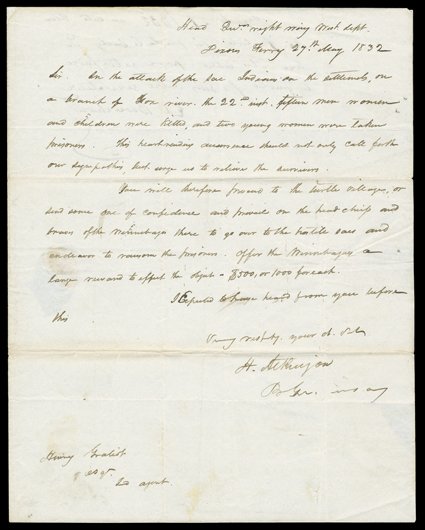 Head Qurs right wing West. dept.
Dixons Ferry 27th May 1832
Sir. In the attack of the Sac Indians on the settlements, on
a branch of Fox river the 22nd inst. fifteen men women
and children were killed, and two young women were taken
prisoners. This heart rending occurrence should not only call forth
our sympathies but urge us to relieve the survivors.
You will therefore proceed to the turtle villages, or
send some one of confidence and prevail on the head chiefs and
braves of the Winnebagos there to go over to the hostile sacs and
endeavor to ransom the prisoners. Offer the Winnebagos a
large reward to effect the object - $500, or 1000 for each.
I Expected to have heard from you before
this
Very respty. your ob. St.
H. Atkinson
Br Gen. US Army
Henry Gratiot
esqr.
Ind agent.